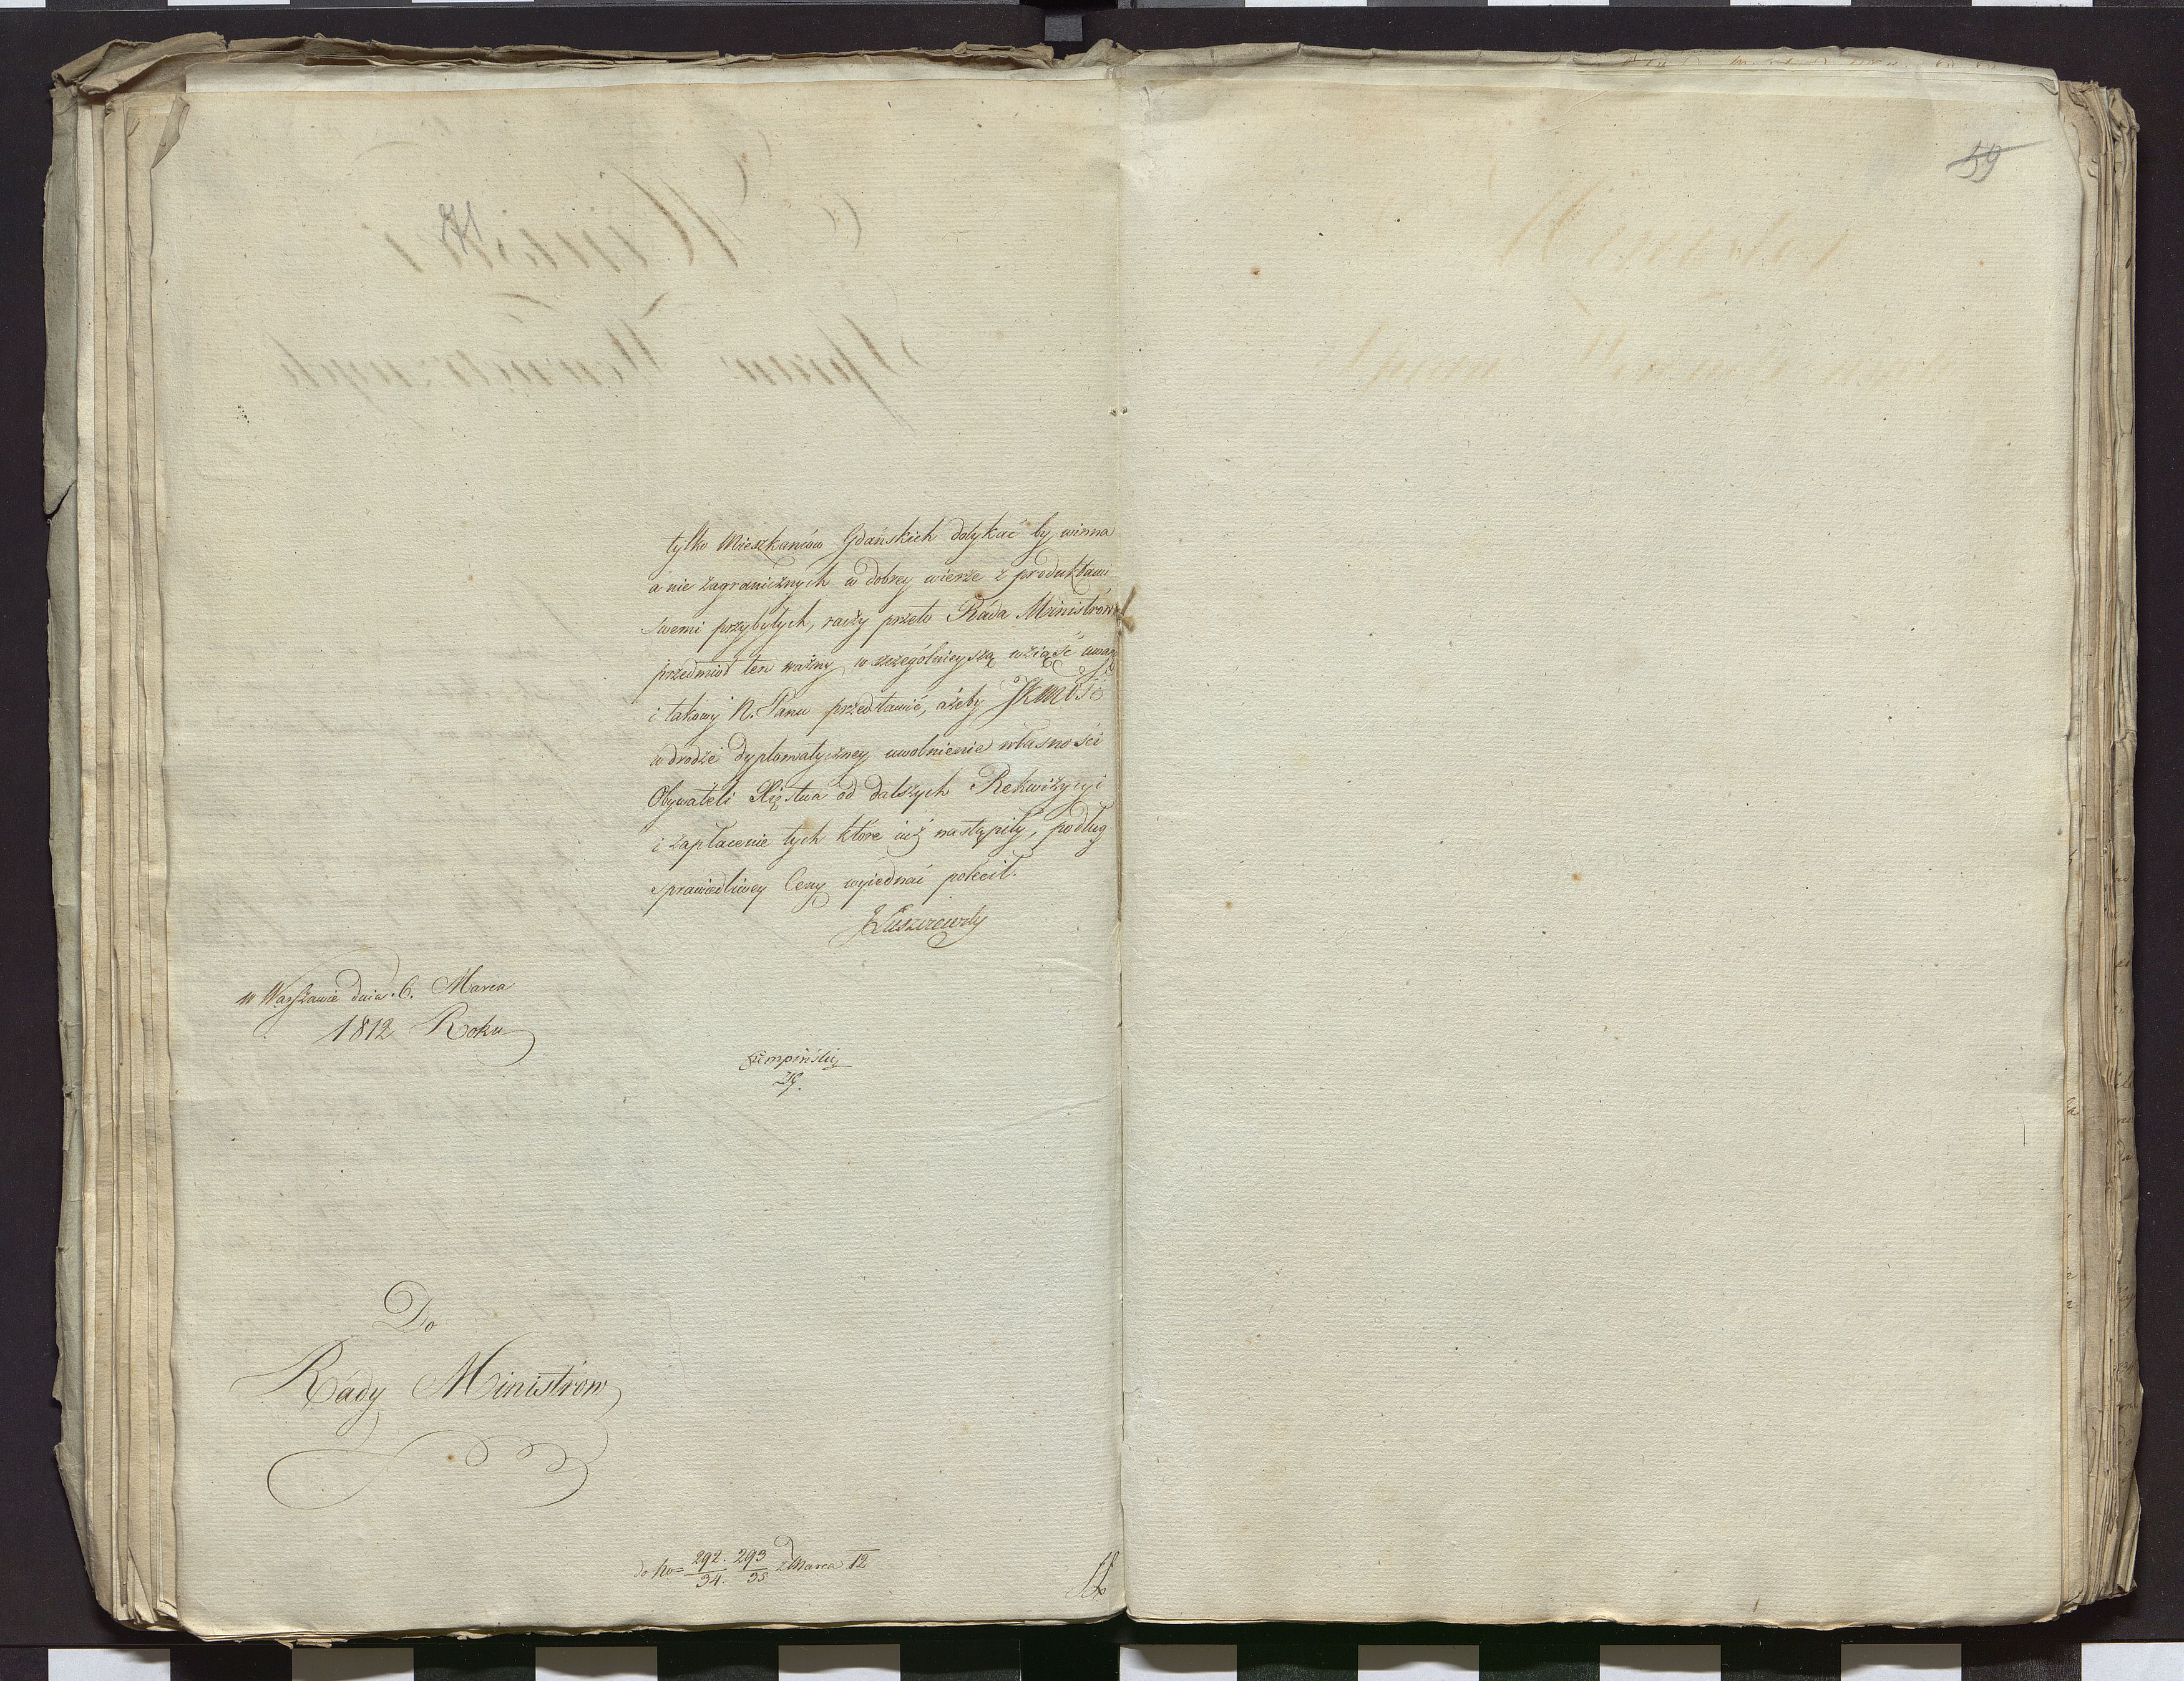 59
tylko Mieszkańców Gdańskich dotykać by winna
a nie zagranicznych w dobrey wierze z produktami
swemi przybyłych, raczy przeto Rada Ministrów
przedmiot ten ważny w szczególnieyszą wziąść uwagę
i takowy N. Panu przedstawić, ażeby JKMość
w drodze dyplomatyczney uwolnienie własności
Obywateli Xięstwa od dalszych Rekwizycyi
i zapłacenie tych które iuż nastąpiły, podług
sprawiedliwey Ceny wyiednać polecił.
JŁuszczewsky
w Warszawie dnia 6. Marca
1812 Roku
Kempiński
Do
Rady Ministrow
do No 292./34. 293/35 z Marca 12